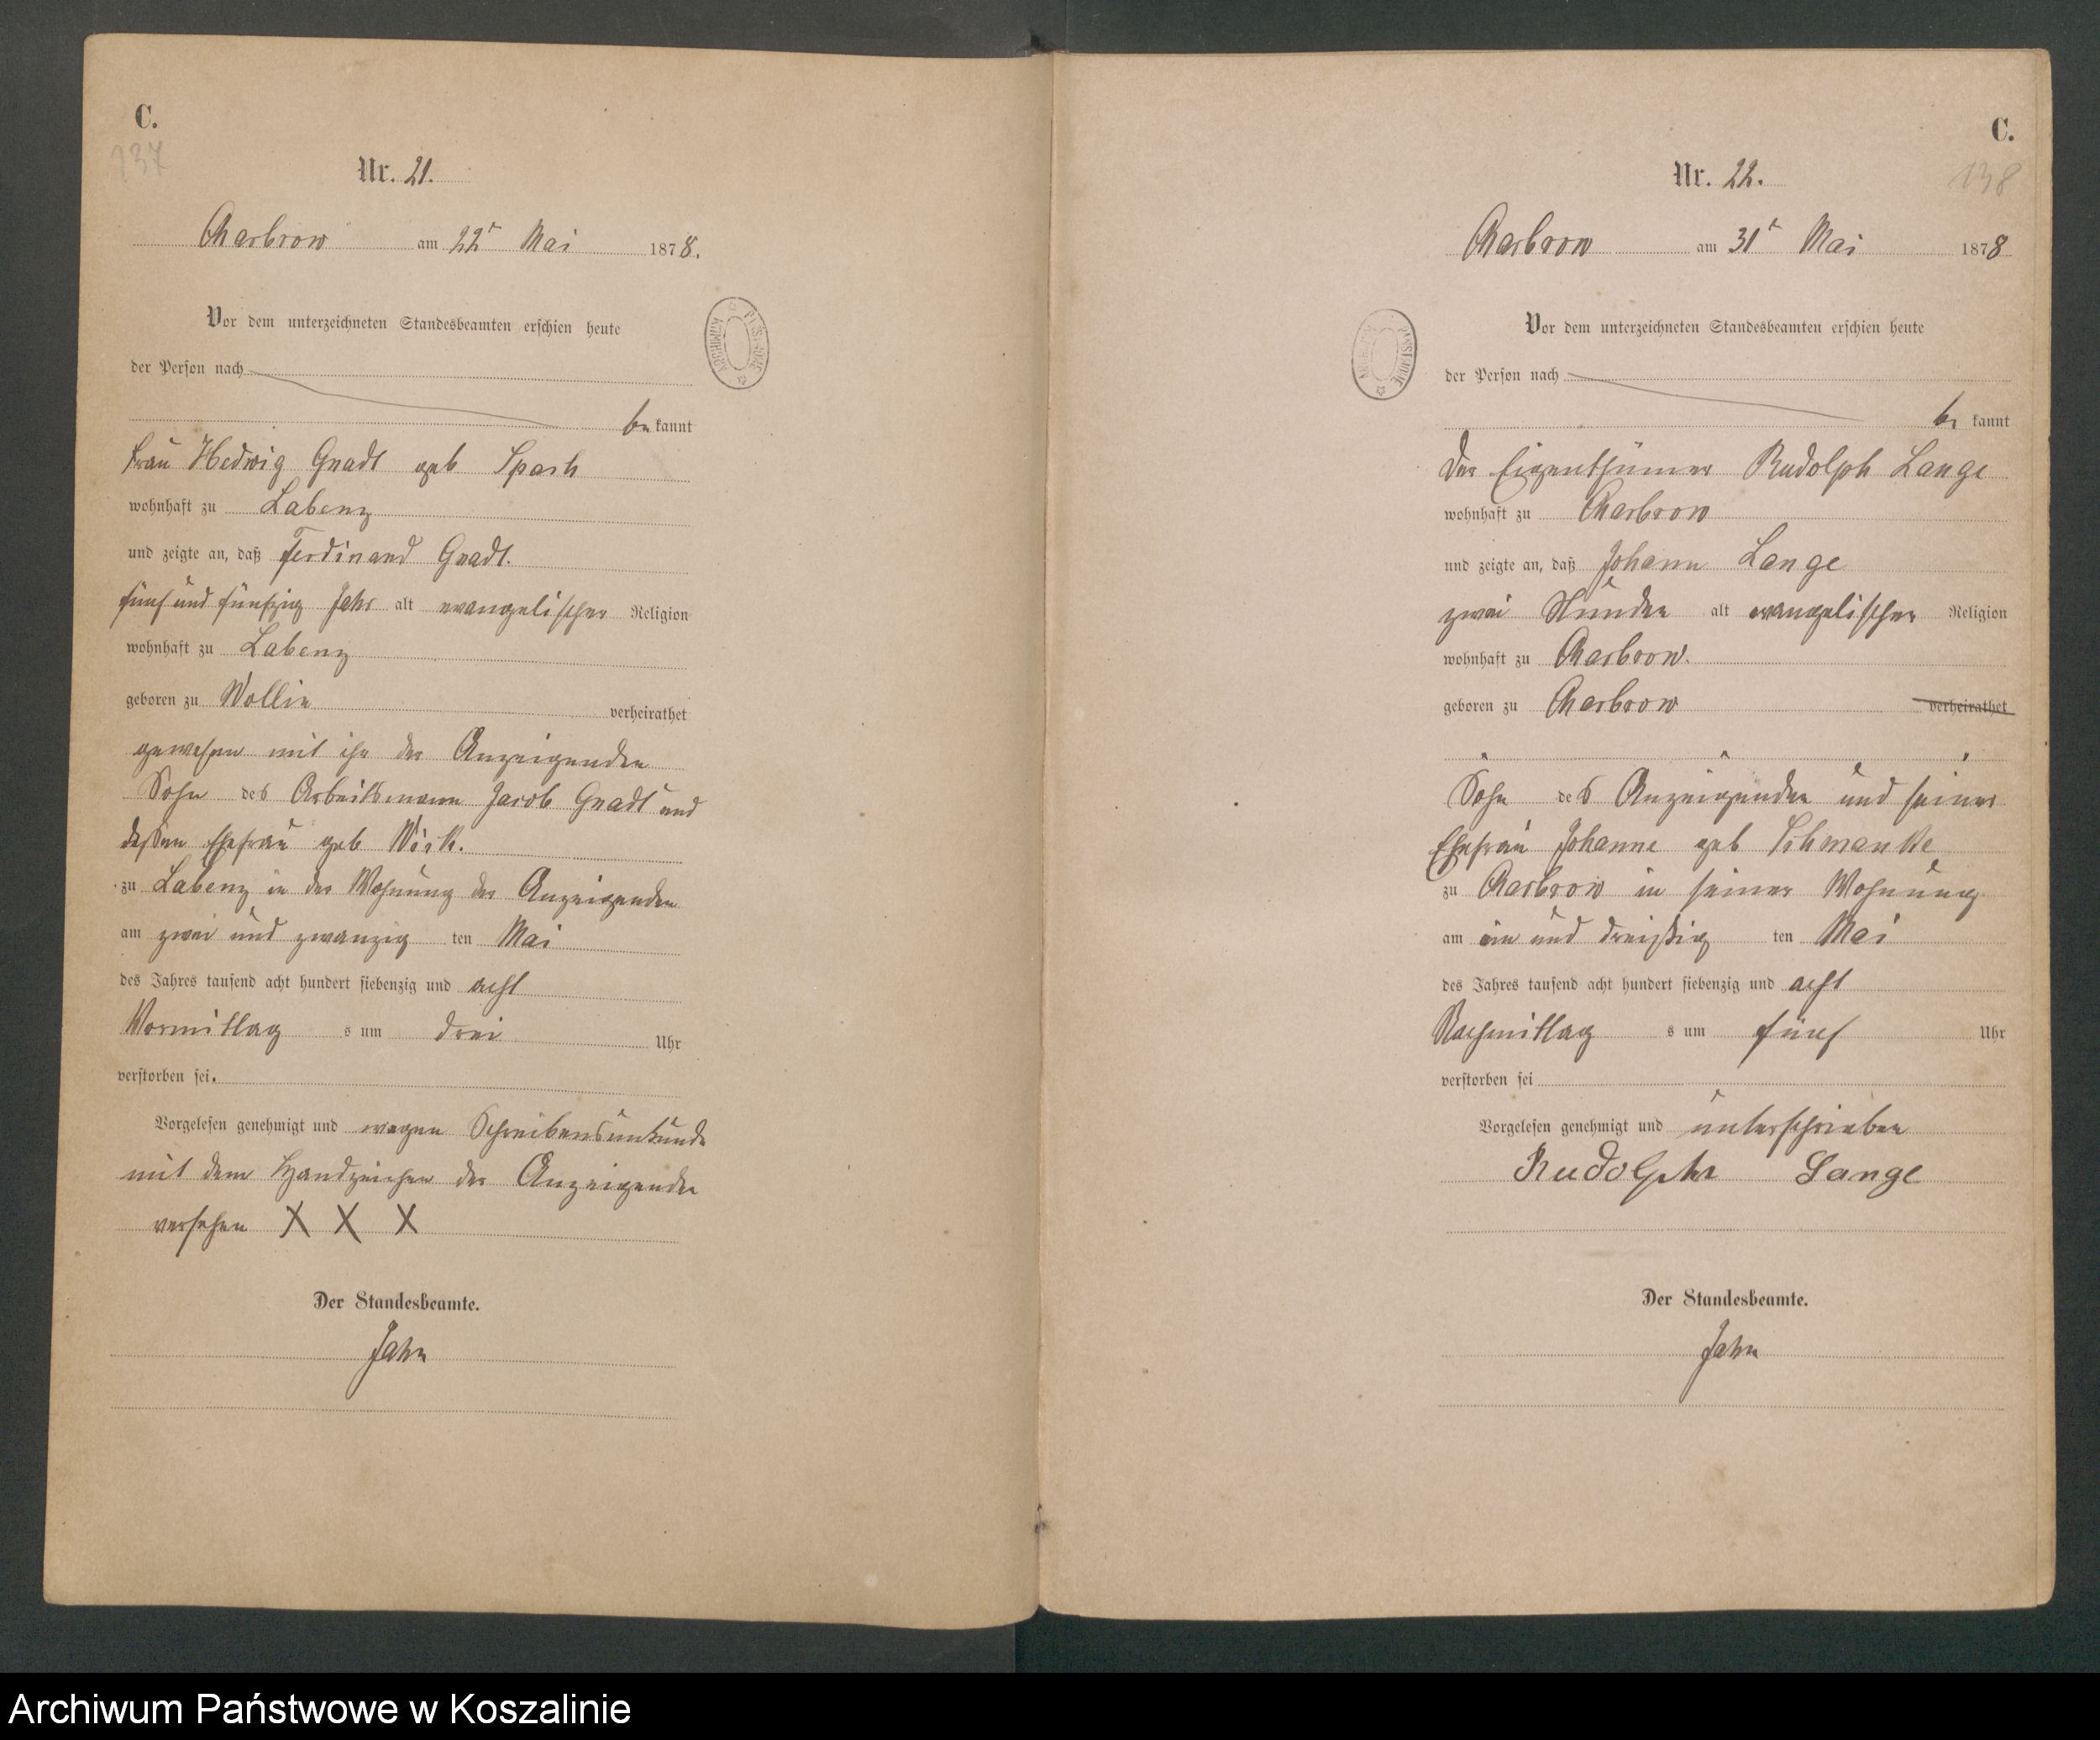 C.
137
Nr. 21.
Charbrow am 22t Mai 1878.
Vor dem unterzeichneten Standesbeamten erschien heute
der Person nach
bekannt
Frau Hedwig Gnadt geb
wohnhaft zu Labenz
und zeigte an, daß Ferdinand Gnadt.
fünf und fünfzig Jahr alt evangelischer Religion
wohnhaft zu Labenz
geboren zu Wollin verheirathet
gewesen mit ihr der Anzeigenden
Sohn des Arbeitsmann Jacob Gnadt und
dessen Ehefrau geb
zu Labenz in der Wohnung der Anzeigenden
am zwei und zwanzig ten Mai
des Jahres tausend acht hundert siebenzig und acht
Vormittag s um drei Uhr
verstorben sei.
Vorgelesen genehmigt und wegen Schreibensunkunde
mit dem Handzeichen der Anzeigenden
versehen X X X
Der Standesbeamte.
Jahn
C.
138
Nr. 22.
Charbrow am 31t Mai 1878
Vor dem unterzeichneten Standesbeamten erschien heute
der Person nach
be kannt
Der Eigenthümer Rudolph Lange
wohnhaft zu Charbrow
und zeigte an, daß Johann Lange
zwei Stunden alt evangelischer Religion
wohnhaft zu Charbrow.
geboren zu Charbrow verheirathet
Sohn des Anzeigenden und seiner
Ehefrau Johanne geb Schmanke
zu Charbrow in seiner Wohnung
am ein und dreißig ten Mai
des Jahres tausend acht hundert siebenzig und acht
Nachmittag s um fünf Uhr
verstorben sei
Vorgelesen genehmigt und unterschrieben
Rudolph Lange
Der Standesbeamte.
Jahn
Archiwum Państwowe w Koszalinie